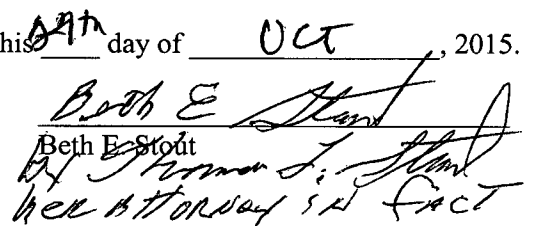 his 29th day of OCT, 2015.
Beth E Stout
Beth E. Stout
By Thomas L. Stout
her Attorney in fact